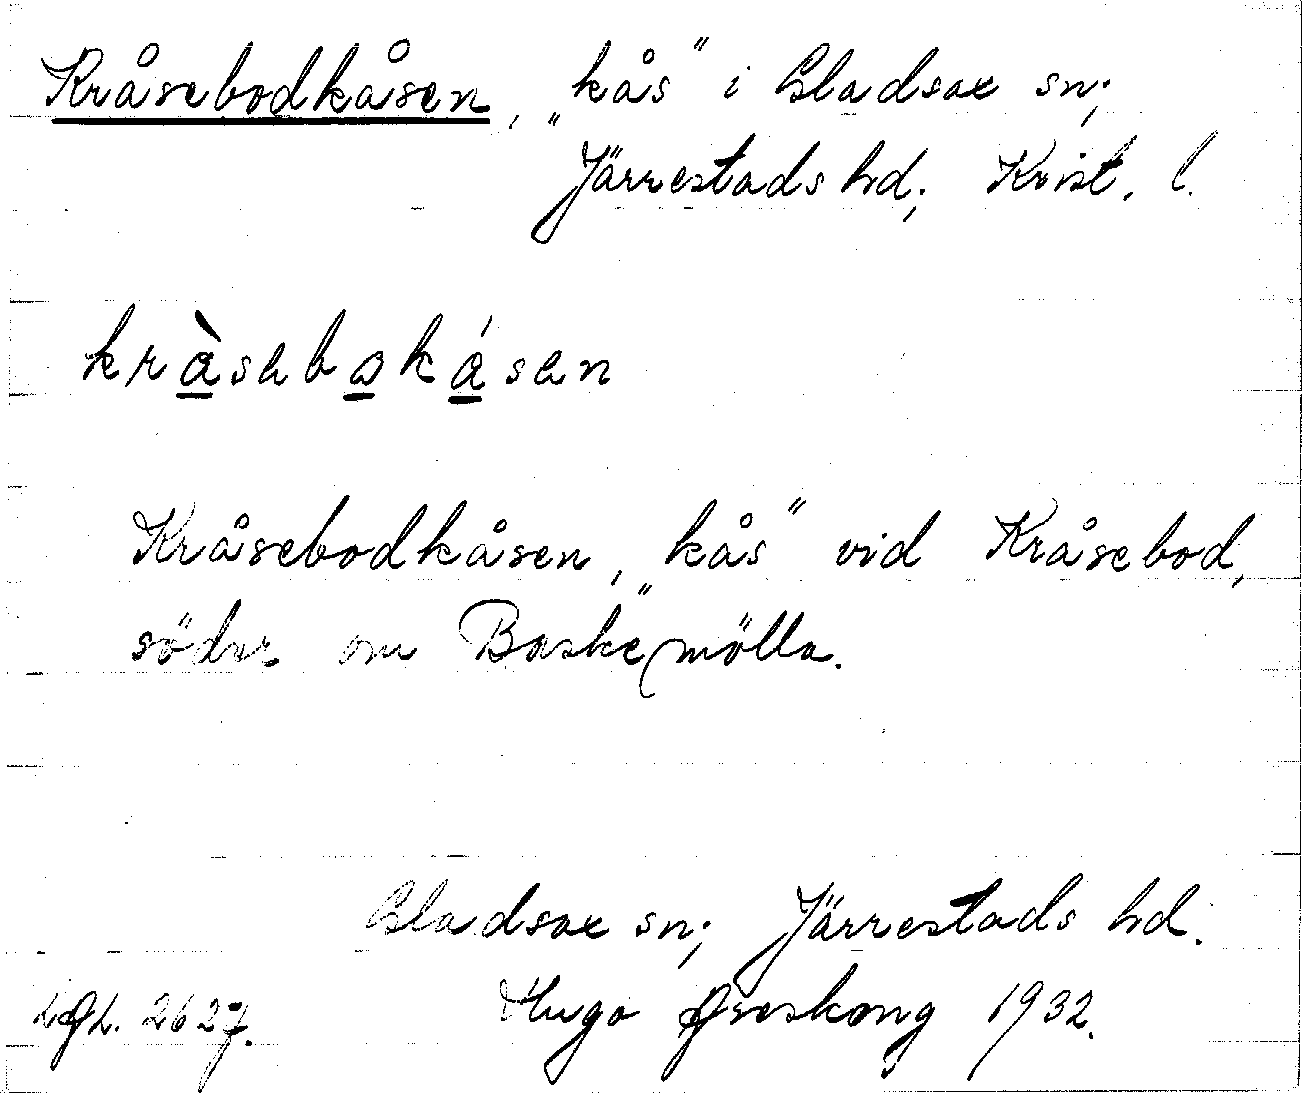 Kråsebodkåsen, "kås" i Gladsax sn;
Järrestads hd; Krist. l.
kràsebokásen
Kråsebodkåsen, "kås" vid Kråsebod,
söder om Baskemölla.
Gladsax sn; Järrestads hd.
2627. Hugo Areskoug 1932.